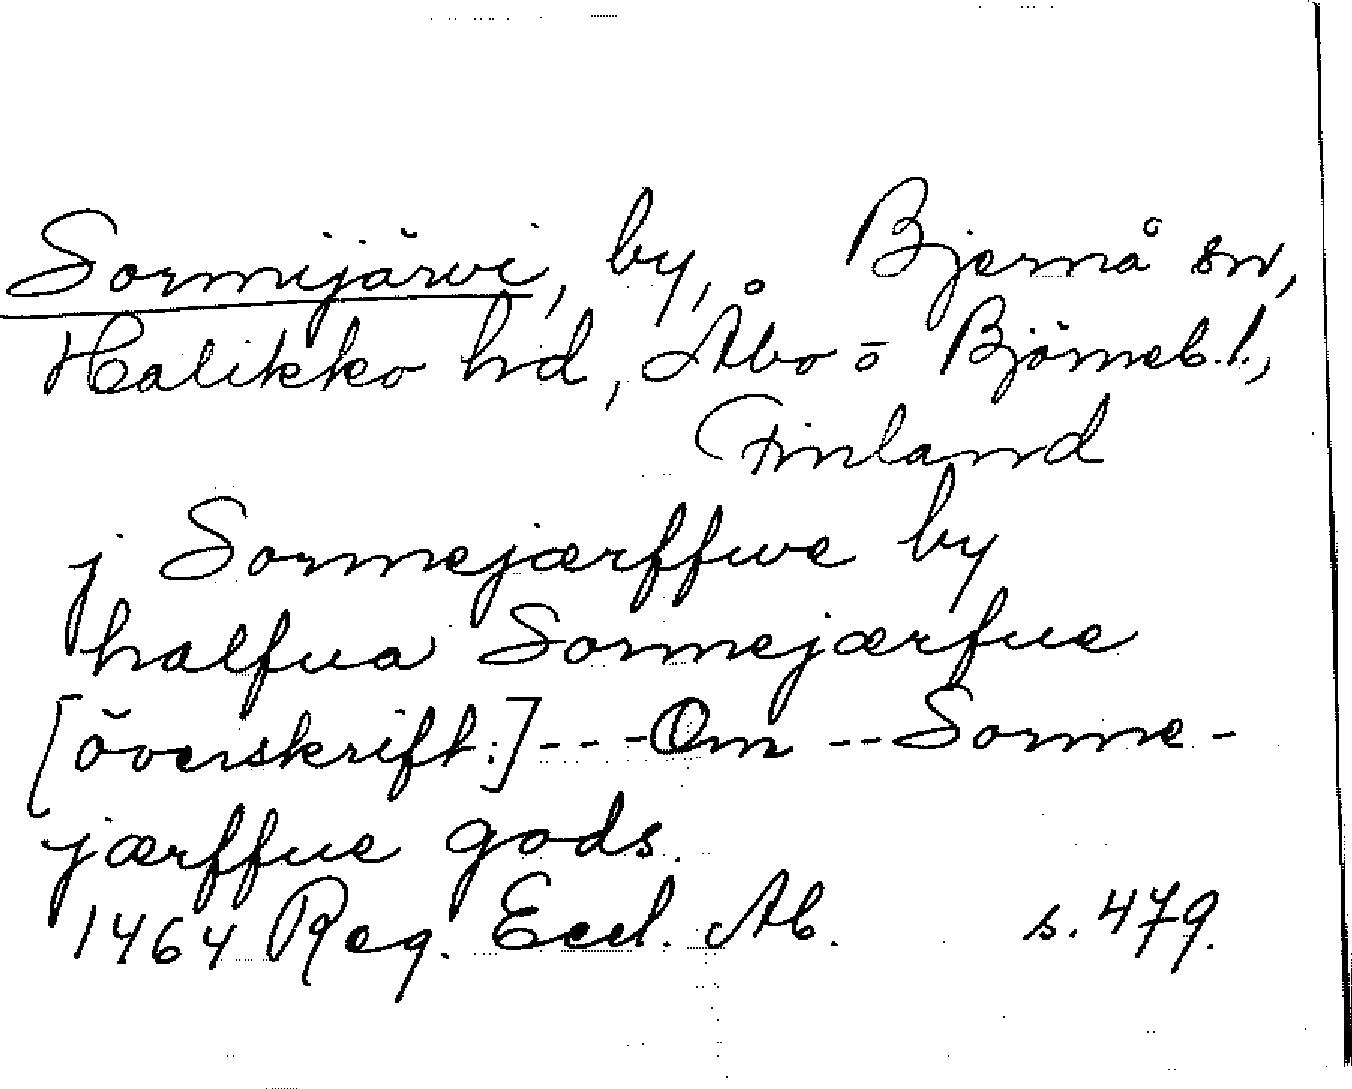 Sormijärvi, by, Bjernå sn,
Halikko hd, Åbo o Björneb. l.,
Finland
j Sormejærffwe by
halfua Sormejærfue
[överskift:] --- Om -- Sorme-
jærffue gods.
1464 Reg. Eccl. Ab. s. 479.